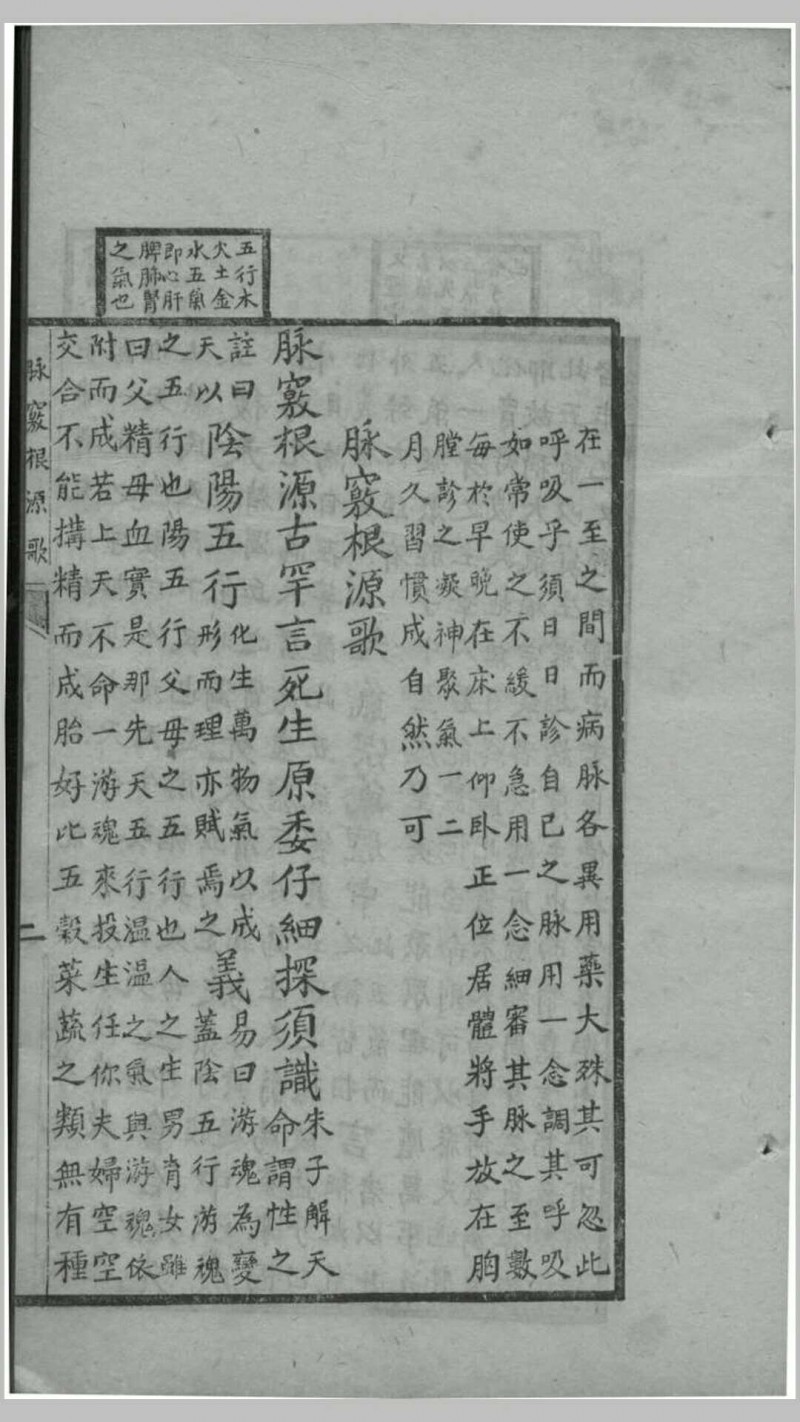 五行木
火土金
水五氣
即心肝
脾肺腎
之氣也
在一至之間而病脉各異用藥大殊其可忽此
呼吸乎須日日診自己之脉用一念調其呼吸
如常使之不緩不急用一念細審其脉之至數
每於早晚在床上仰卧正位居體將手放在胸
膛診之凝神聚氣一二
月久習慣成自然乃可
脉竅根源歌
脉竅根源古罕言死生原委仔細探須識朱子解天命謂性之
註曰天以陰陽五行化生萬物氣以成形而理亦賦焉之義易曰游魂為變蓋陰五行游魂
之五行也陽五行父母之五行也人之生男育女雖
曰父精母血實是那先天五行温温之氣與游魂依
附而成若上天不命一游魂來投生任你夫婦空空
交合不能搆精而成胎好比五穀菜蔬之類無有種
脉竅根源歌
二